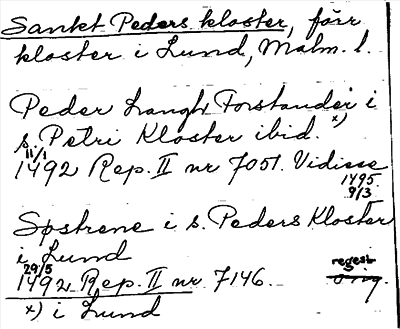 Sankt Peders kloster, förr
kloster i Lund, Malm. l.
Peder Langh, Forstander i
s. Petri Kloster ibid. x)
11/1
1492 Rep. II nr 7051. Vidisse
1495
9/3
Søstrene i s. Peders Kloster
i Lund
29/5
regest
1492 Rep. II nr 7146. orig.
x) i Lund